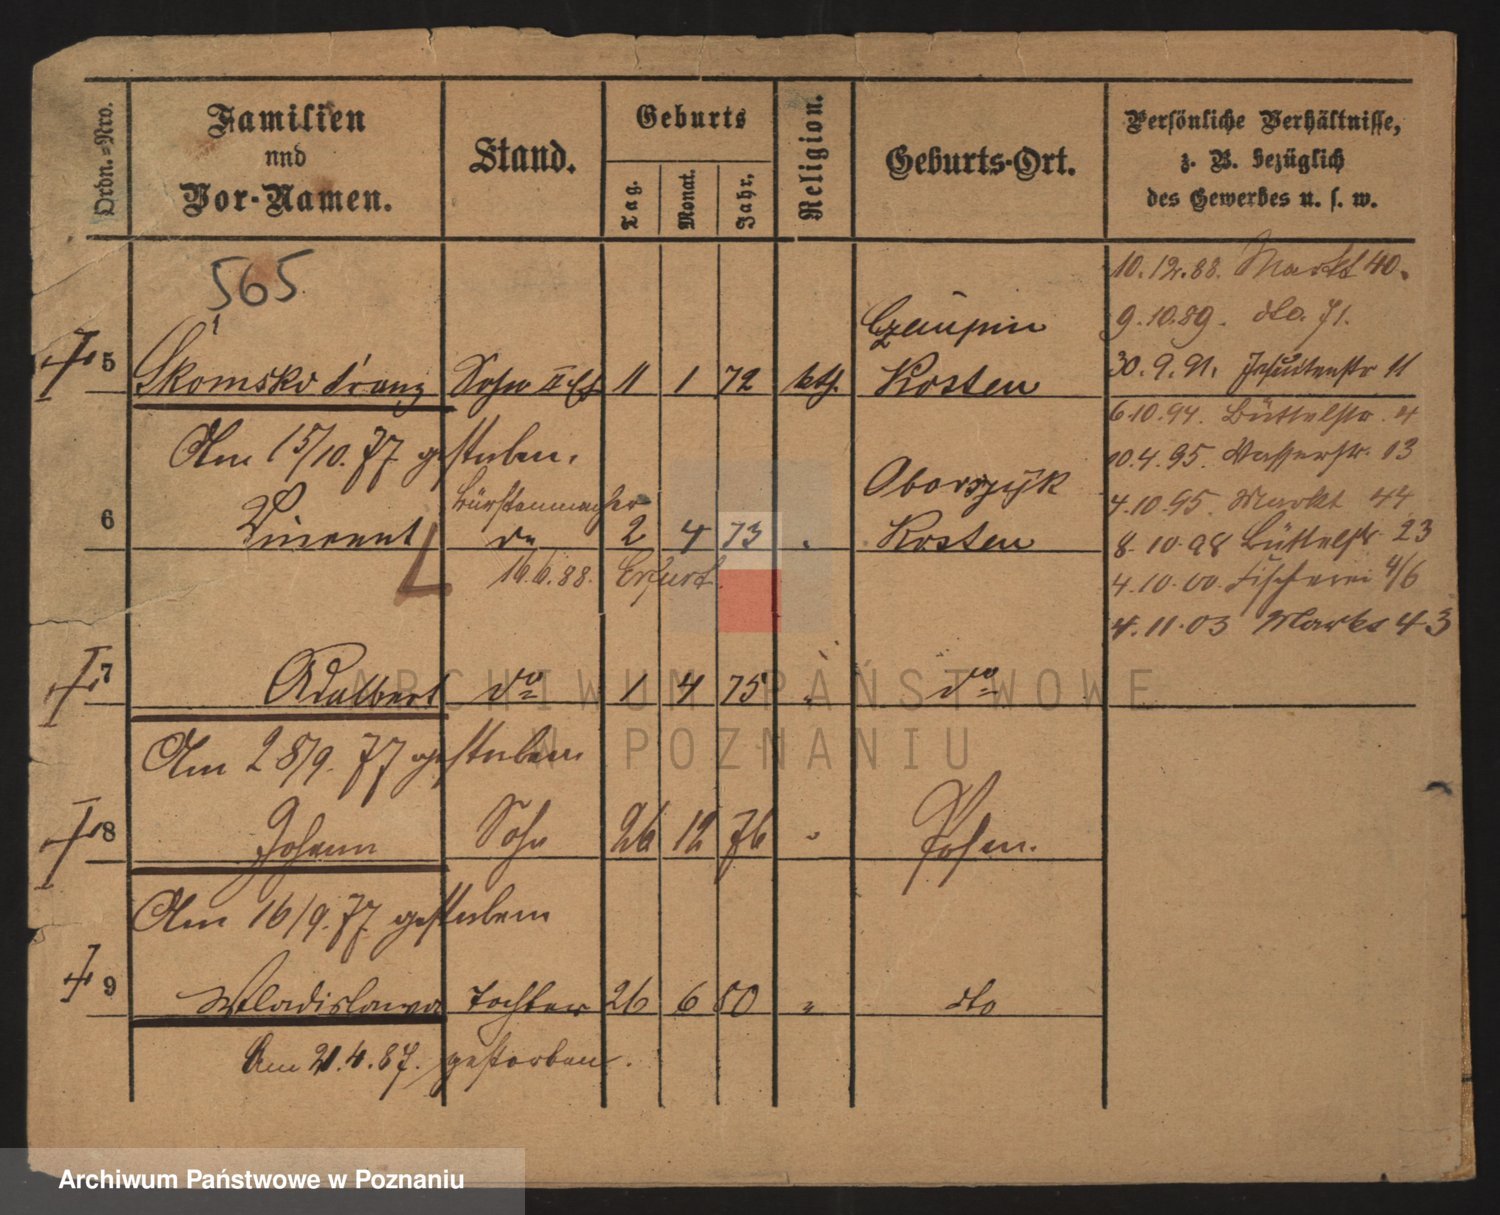 Ordn.-Nro.
Familien
nnd
Vor-Namen.
Stand.
Geburts
Tag.
Monat.
Jahr.
Religion.
Geburts-Ort.
Persönliche Verhältnisse,
z. B. bezüglich
des Gewerbes u. s. w.
565
10.12.88. Markt 40.
9.10.89. dto. 71.
Kosten
5 Skomski Franz Sohn II Eh 11 1 72 kth.
30.9.91. Jesuitenstr 11
6.10.94. Büttelstr. 4
Am 15/10.77 gestorben.
10.4.95. Wasserstr. 13
Bürstenmacher
Oborzysk
4.10.95. Markt 44
6 Vincent do 2 4 73 Kosten
8.10.98 Büttelstr 23
16.6.88. Erfurt.
4.10.00. Fischerei 4/6
4.11.03 Markt 43
7 Adalbert do 1 4 75 " do
Am 28/9.77 gestorben
8 Johann Sohn 26 12 76 " Posen.
Am 16/9.77 gestorben
9 Wladislawa Tochter 26 6 80 " dto
Am 21.4.87. gestorben.
ARCHIWUM PAŃSTWOWE
W POZNANIU
Archiwum Państwowe w Poznaniu